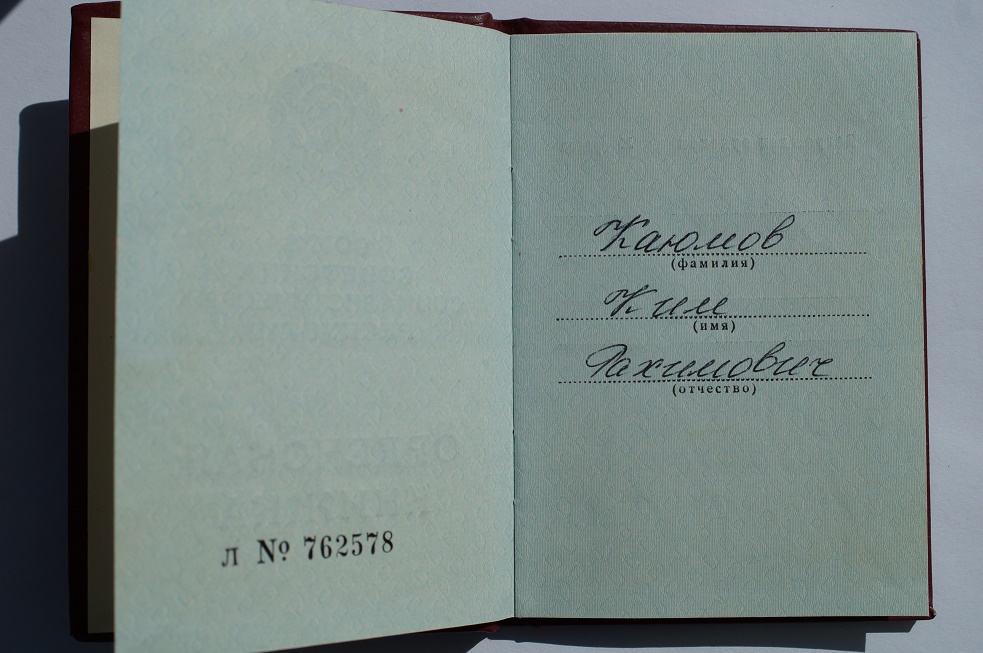 л № 762578
Каюмов
(фамилия)
Ким
(имя)
Рахимович
(отчество)